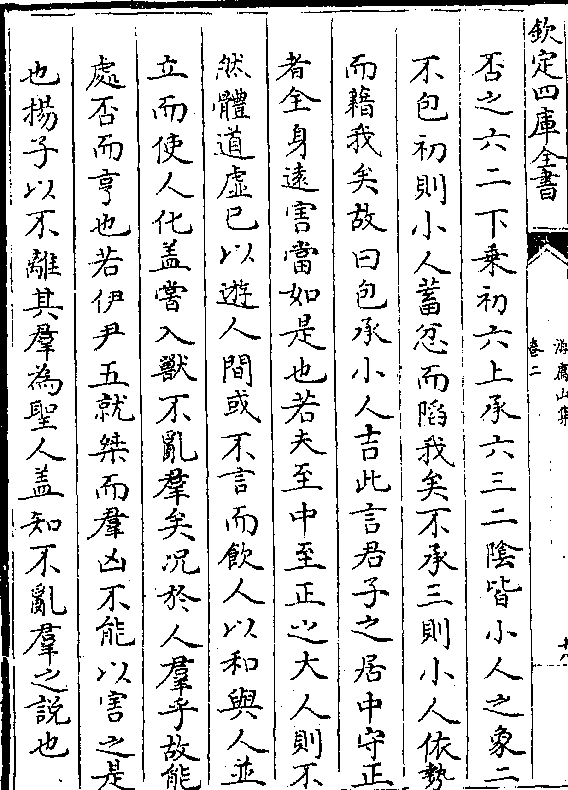 欽定四庫全書
游廌山集
卷二
否之六二下乗初六上承六三二陰皆小人之象二
不包初則小人蓄忿而䧟我矣不承三則小人依勢
而藉我矣故曰包承小人吉此言君子之居中守正
者全身逺害當如是也若夫至中至正之大人則不
然體道虛已以遊人間或不言而飲人以和與人並
立而使人化盖嘗入獸不亂羣矣况於人羣乎故能
處否而亨也若伊尹五就桀而羣凶不能以害之是
也揚子以不離其羣為聖人盖知不亂羣之説也